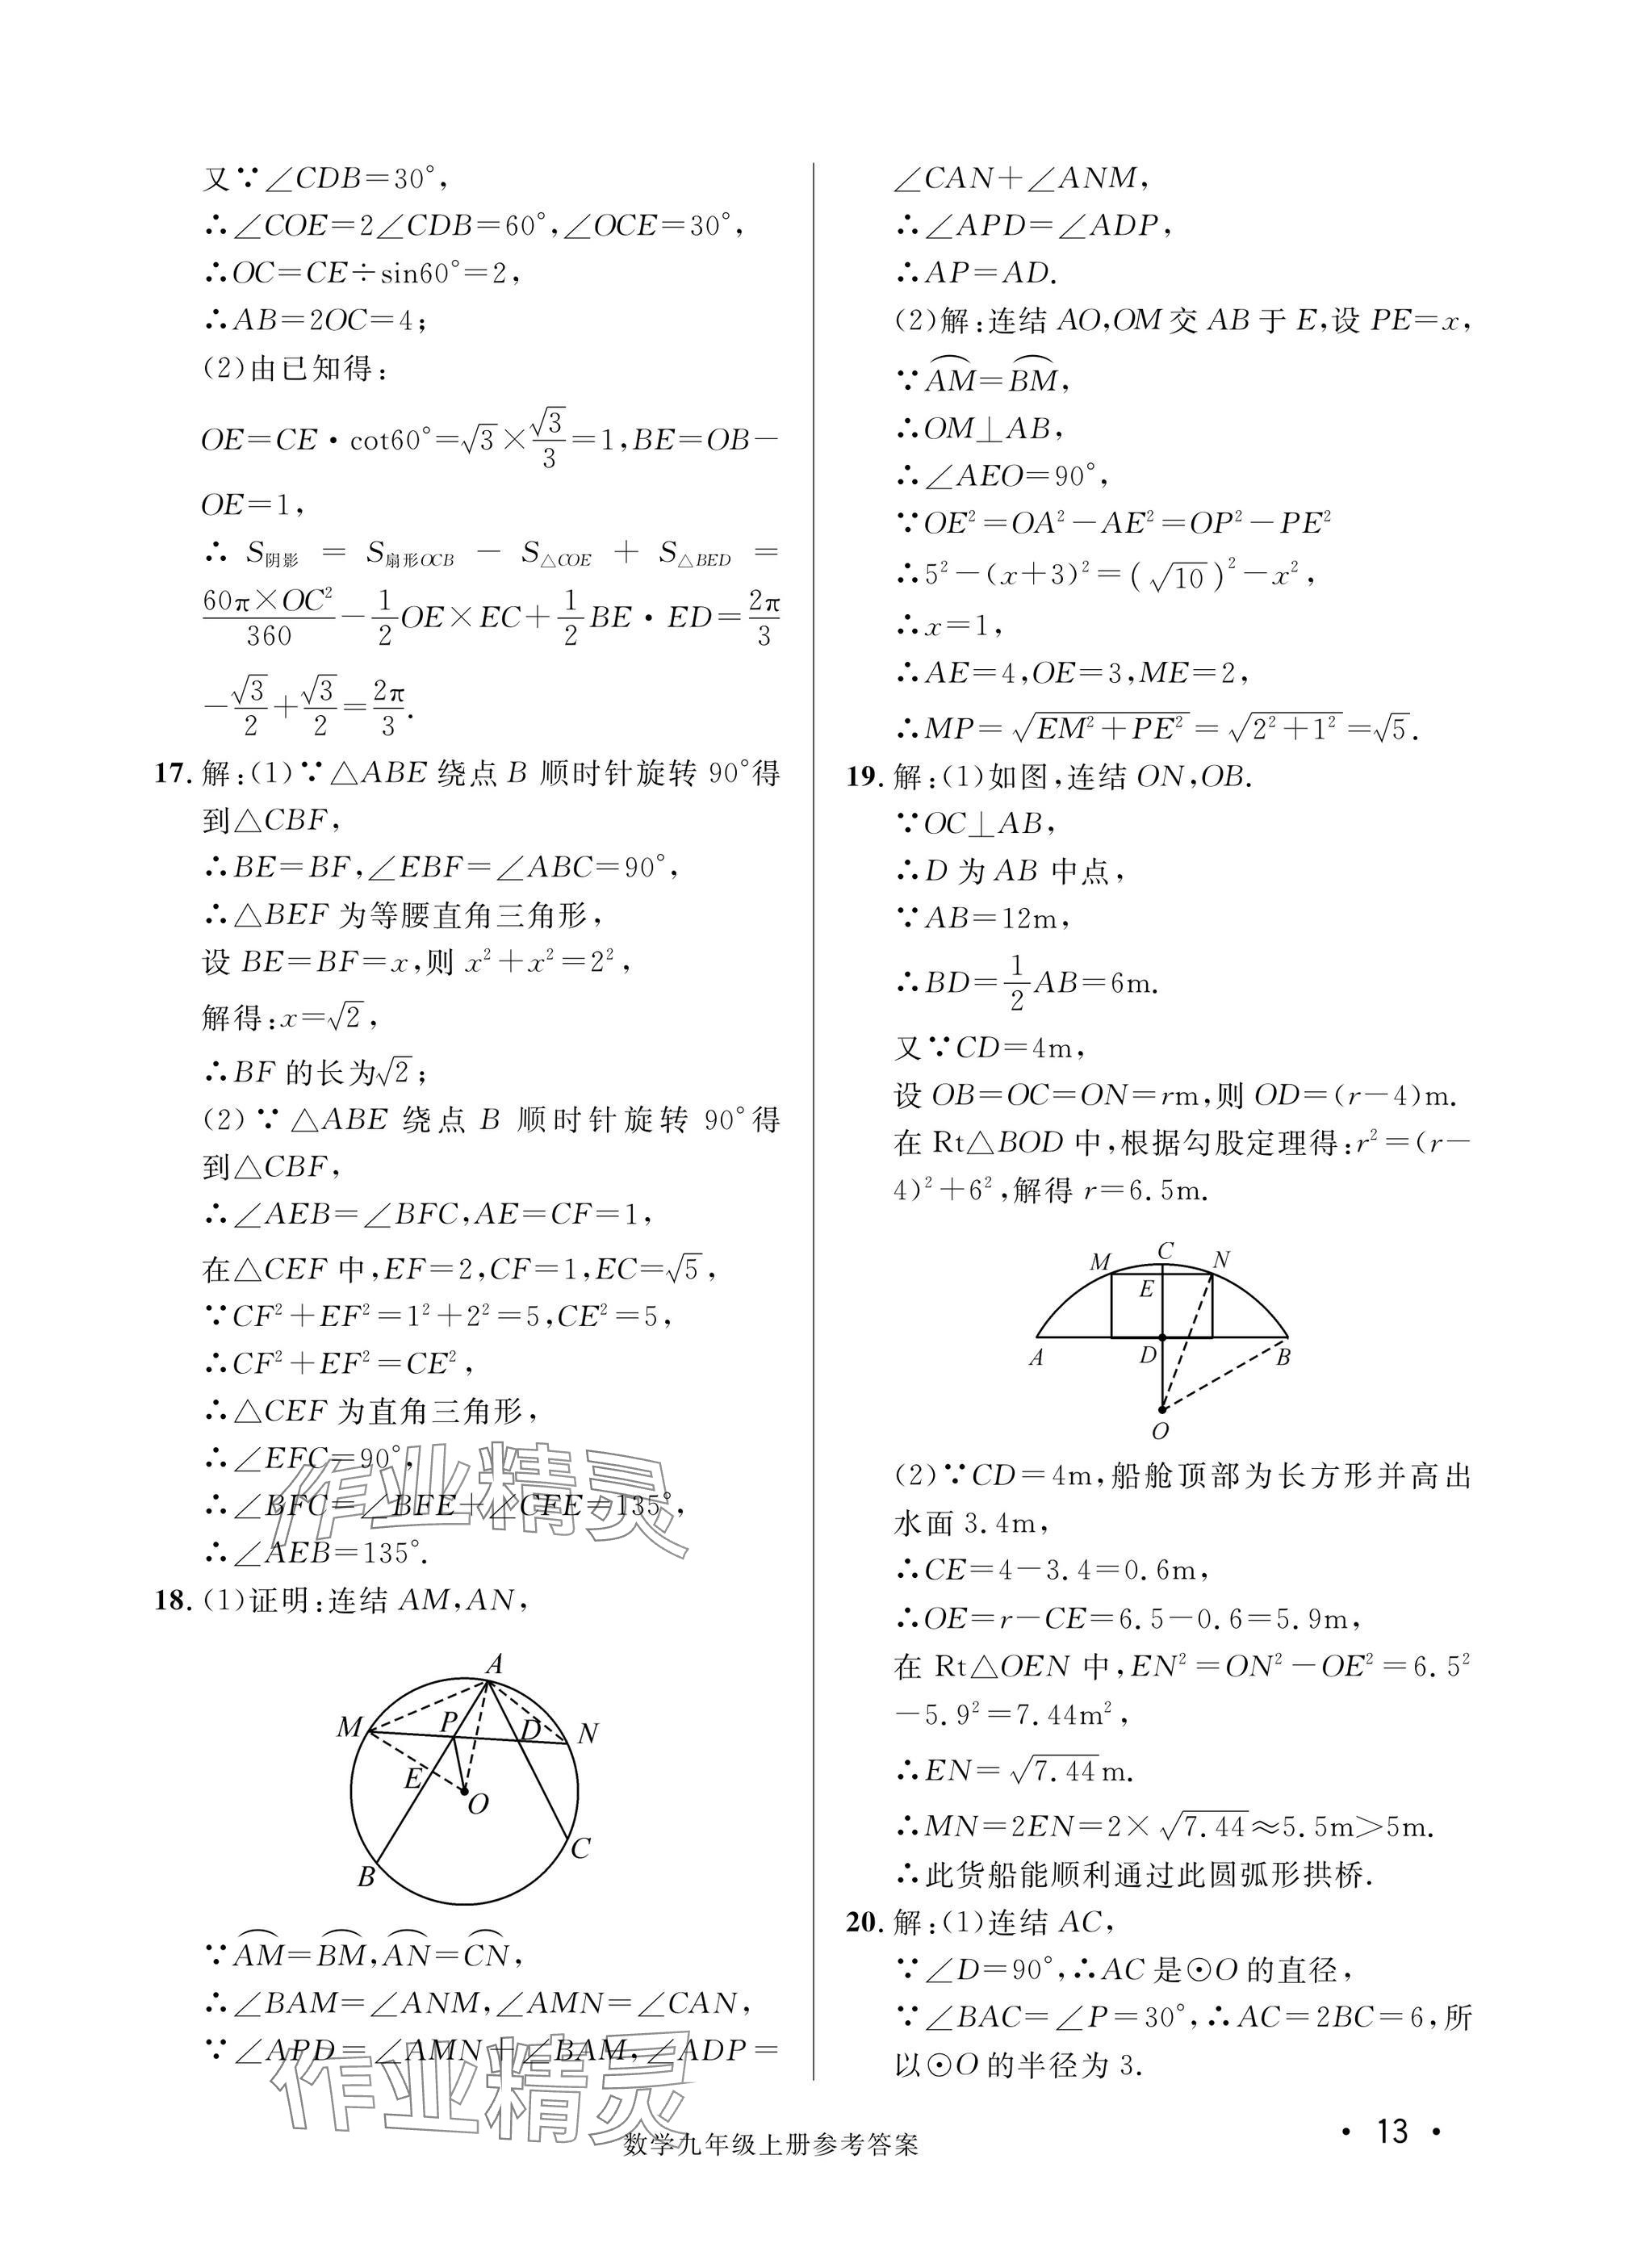 又∵∠CDB=30°,
∴∠COE=2∠CDB=60°,∠OCE=30°,
∴OC=CE÷sin60°=2,
∴AB=2OC=4;
(2)由已知得:
OE=CE·cot60°=√3×√3/3=1,BE=OB-
OE=1,
∴ S阴影 = S扇形OCB - S△COE + S△BED =
60π×OC²/360-1/2OE×EC+1/2BE·ED=2π/3
-√3/2+√3/2=2π/3.
17. 解:(1)∵△ABE 绕点 B 顺时针旋转 90°得
到△CBF,
∴BE=BF,∠EBF=∠ABC=90°,
∴△BEF 为等腰直角三角形,
设 BE=BF=x,则 x²+x²=2²,
解得:x=√2,
∴BF 的长为√2;
(2)∵△ABE 绕点 B 顺时针旋转 90°得
到△CBF,
∴∠AEB=∠BFC,AE=CF=1,
在△CEF 中,EF=2,CF=1,EC=√5,
∵CF²+EF²=1²+2²=5,CE²=5,
∴CF²+EF²=CE²,
∴△CEF 为直角三角形,
∴∠EFC=90°,
∴∠BFC=∠BFE+∠CFE=135°,
∴∠AEB=135°.
作业精灵
18. (1)证明:连结 AM,AN,
A
M
P
D
N
E
O
C
B
∵AM⌒=BM⌒,AN⌒=CN⌒,
∴∠BAM=∠ANM,∠AMN=∠CAN,
∵∠APD=∠AMN+∠BAM,∠ADP=
作业精灵
∠CAN+∠ANM,
∴∠APD=∠ADP,
∴AP=AD.
(2)解:连结 AO,OM 交 AB 于 E,设 PE=x,
∵AM⌒=BM⌒,
∴OM⊥AB,
∴∠AEO=90°,
∵OE²=OA²-AE²=OP²-PE²
∴5²-(x+3)²=(√10)²-x²,
∴x=1,
∴AE=4,OE=3,ME=2,
∴MP=√(EM²+PE²)=√(2²+1²)=√5.
19. 解:(1)如图,连结 ON,OB.
∵OC⊥AB,
∴D 为 AB 中点,
∵AB=12m,
∴BD=1/2AB=6m.
又∵CD=4m,
设 OB=OC=ON=rm,则 OD=(r-4)m.
在 Rt△BOD 中,根据勾股定理得:r²=(r-
4)²+6²,解得 r=6.5m.
M
C
N
E
A
D
B
O
(2)∵CD=4m,船舱顶部为长方形并高出
水面 3.4m,
∴CE=4-3.4=0.6m,
∴OE=r-CE=6.5-0.6=5.9m,
在 Rt△OEN 中,EN²=ON²-OE²=6.5²
-5.9²=7.44m²,
∴EN=√7.44m.
∴MN=2EN=2×√7.44≈5.5m>5m.
∴此货船能顺利通过此圆弧形拱桥.
20. 解:(1)连结 AC,
∵∠D=90°,∴AC 是⊙O 的直径,
∵∠BAC=∠P=30°,∴AC=2BC=6,所
以⊙O 的半径为 3.
数学九年级上册参考答案
· 13 ·